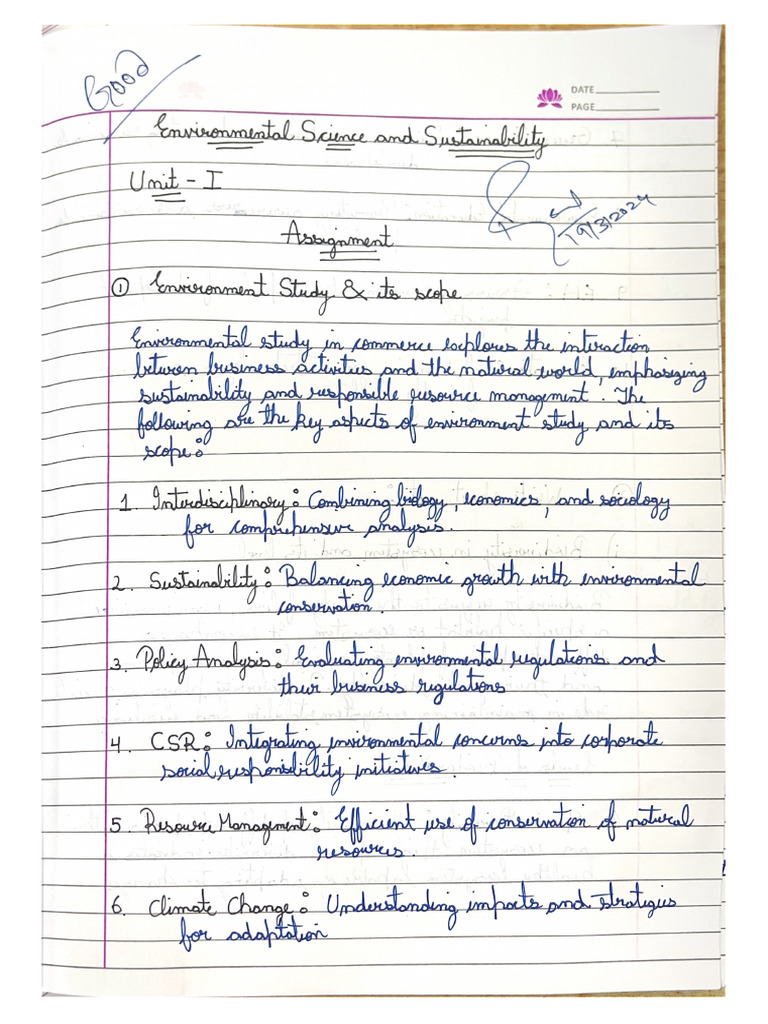 Good
DATE
PAGE
Environmental Science and Sustainability
Unit - I
19/3/2024
Assignment
① Environment Study & its scope
Environmental study in commerce explores the interaction
between business activities and the natural world, emphasizing
sustainability and responsible resource management. The
following are the key aspects of environment study and its
scope:
1. Interdisciplinary: Combining biology, economics, and sociology
for comprehensive analysis.
2. Sustainability: Balancing economic growth with environmental
conservation.
3. Policy Analysis: Evaluating environmental regulations and
their business regulations
4. CSR: Integrating environmental concerns into corporate
social responsibility initiatives.
5. Resource Management: Efficient use of conservation of natural
resources.
6. Climate Change: Understanding impacts and strategies
for adaptation